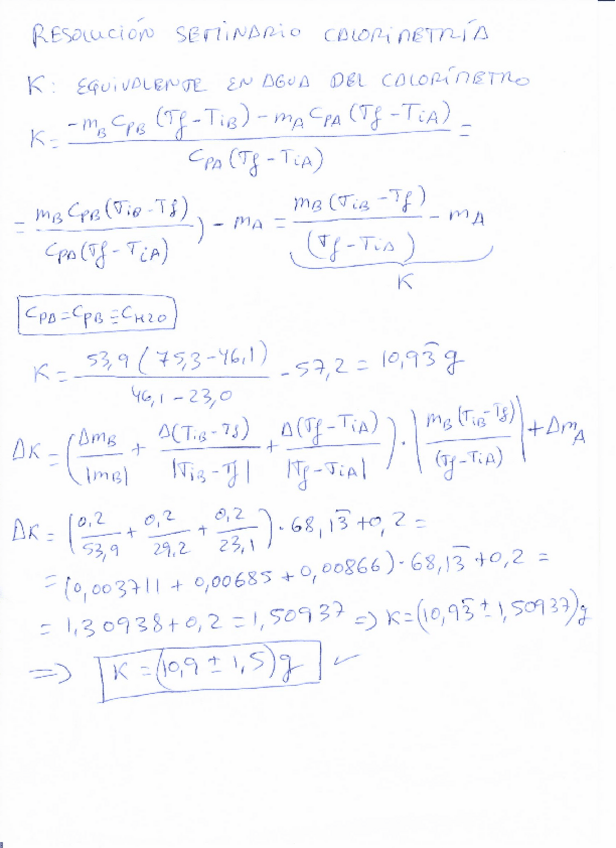 RESOLUCIÓN SEMINARIO CALORIMETRÍA
K: EQUIVALENTE EN AGUA DEL CALORÍMETRO
K = (-m_B C_PB (Tf - T_iB) - m_A C_PA (Tf - T_iA)) / (C_PA (Tf - T_iA)) =
= (m_B C_PB (T_iB - Tf)) / (C_PA (Tf - T_iA)) ) - m_A = (m_B (T_iB - Tf)) / ((Tf - T_iA)) - m_A
K
C_PA = C_PB ≡ C_H2O
K = 53,9 (75,3 - 46,1) / 46,1 - 23,0 - 57,2 = 10,93 g
ΔK = (Δm_B / |m_B| + Δ(T_iB - Tf) / |T_iB - Tf| + Δ(Tf - T_iA) / |Tf - T_iA|) · |m_B (T_iB - Tf) / (Tf - T_iA)| + Δm_A
ΔK = (0,2 / 53,9 + 0,2 / 29,2 + 0,2 / 23,1) · 68,13 + 0,2 =
= (0,003711 + 0,00685 + 0,00866) · 68,13 + 0,2 =
= 1,30938 + 0,2 = 1,50937 => K = (10,93 ± 1,50937) g
=> K = (10,9 ± 1,5) g ✓